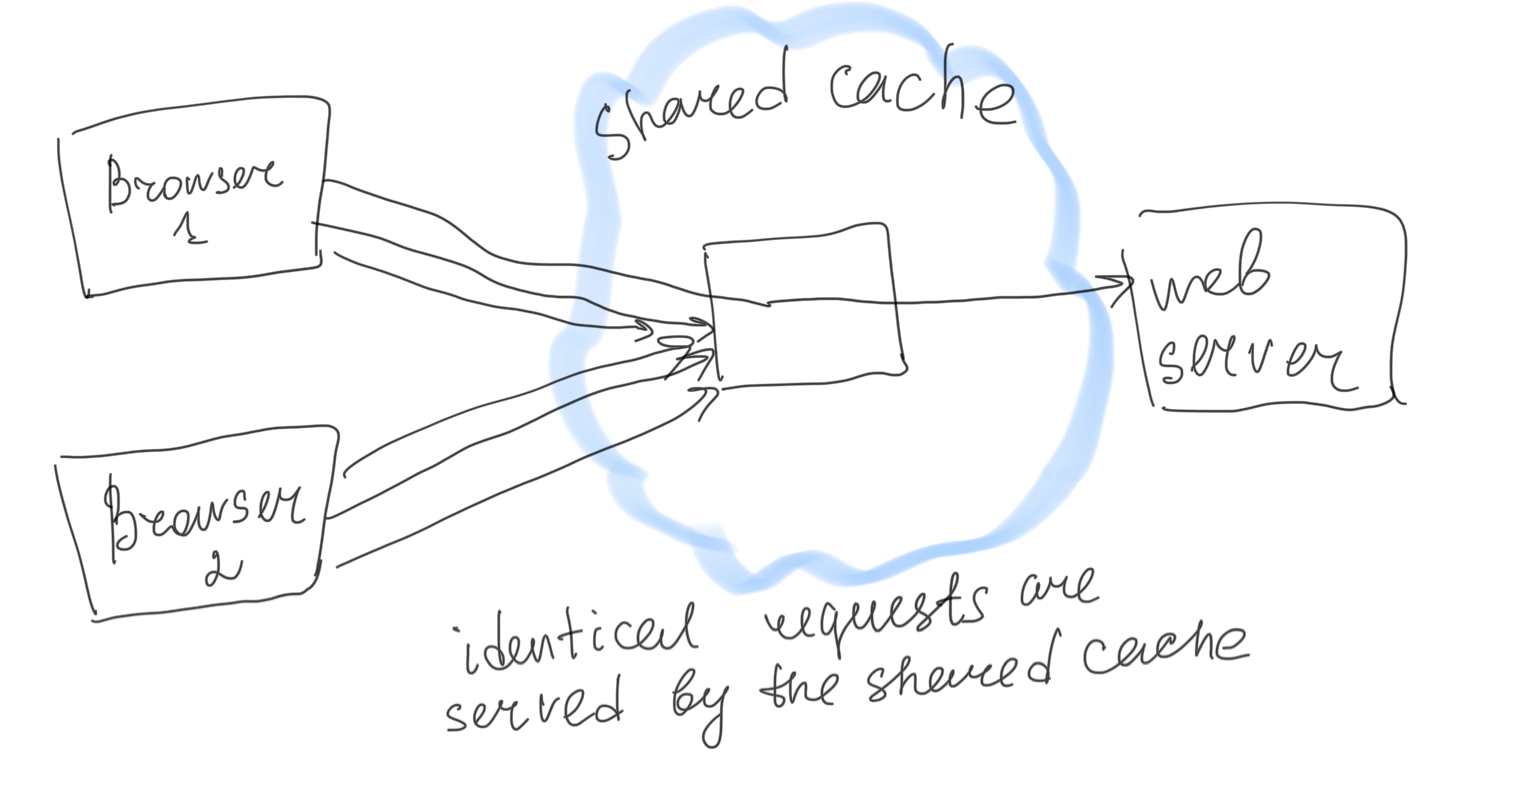 shared cache
Browser
1
web
server
Browser
2
identical requests are
served by the shared cache